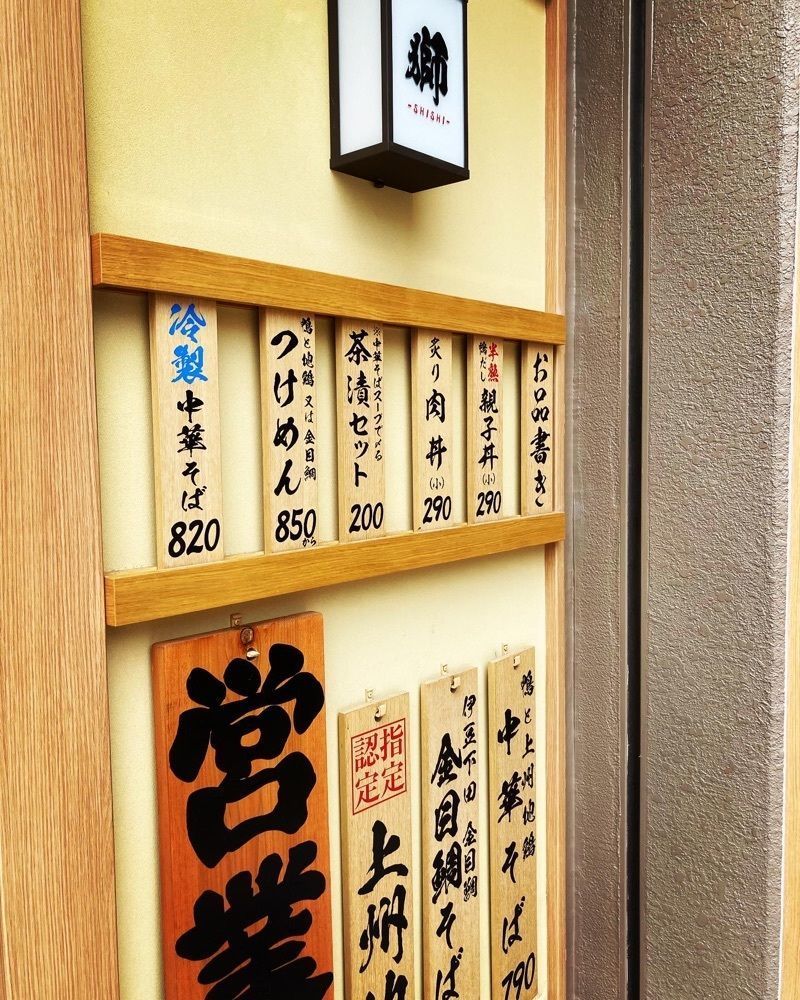 獅
-SHISHI-
お品書き
半熟
鴨だし
親子丼(小)
290
炙り肉丼(小)
290
※中華そばスープで〆る
茶漬セット
200
鴨と地鶏 又は 金目鯛
つけめん
850から
冷製
中華そば
820
鴨と上州地鶏
中華そば
790
伊豆下田 金目鯛
金目鯛そば
指定
認定
上州地
営業